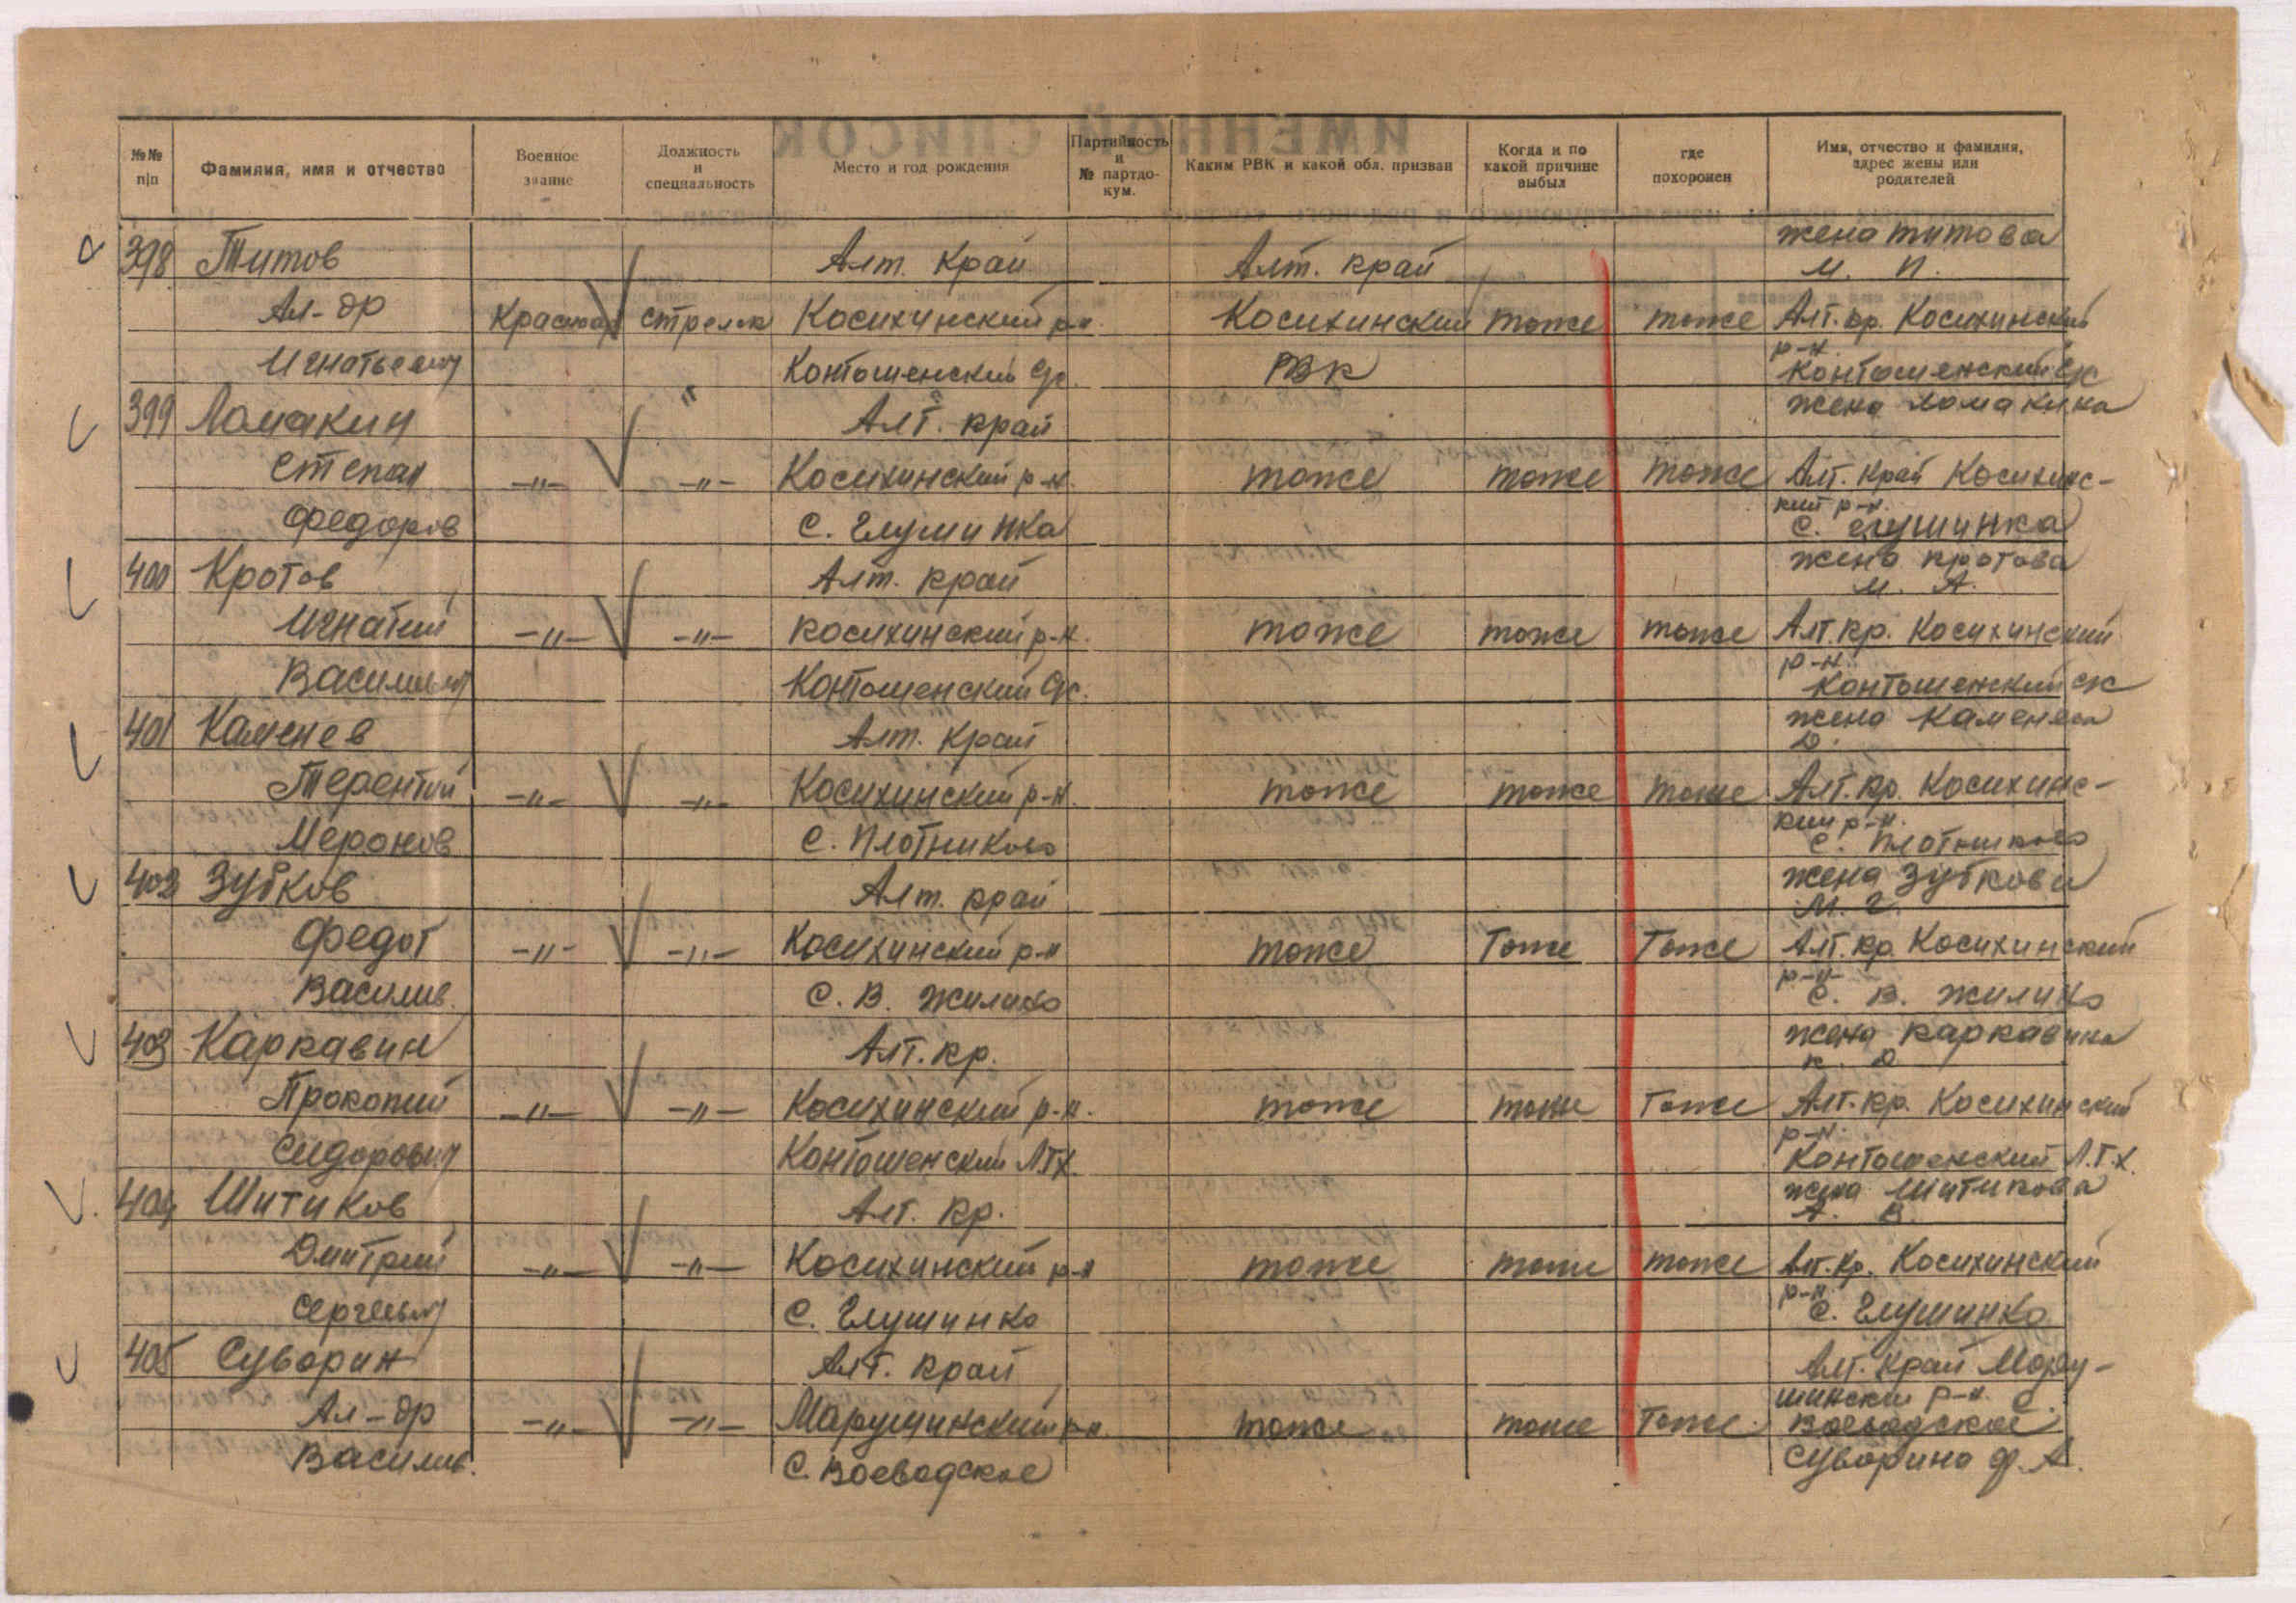 №№ п|п
Фамилия, имя и отчество
Военное звание
Должность и специальность
Место и год рождения
Партийность и № партдокум.
Каким РВК и какой обл. призван
Когда и по какой причине выбыл
где похоронен
Имя, отчество и фамилия, адрес жены или родителей
жена Титова
398 Титов Алт. край Алт. край М. П.
Ал-др Красноар стрелок Косихинский р-н. Косихинский тоже тоже Алт. кр. Косихинский
р-н.
Игнатьевич Контошенский с/с. РВК Контошенский с/с
жена Ломакина
399 Ломакин " Алт. край
Степан -"- -"- Косихинский р-н. тоже тоже тоже Алт. край Косихинс-
кий р-н.
Федоров с. Глушинка с. Глушинка
жена Кротова
400 Кротов Алт. край М. А.
Игнатий -"- -"- Косихинский р-н. тоже тоже тоже Алт. кр. Косихинский
р-н.
Васильевич Контошенский с/с. Контошенский с/с
жена Каменева
401 Каменев Алт. край Д.
Терентий -"- -"- Косихинский р-н. тоже тоже тоже Алт. кр. Косихинс-
кий р-н.
Меронов с. Плотниково с. Плотниково
жена Зубкова
402 Зубков Алт. край М. Г.
Федот -"- -"- Косихинский р-н тоже Тоже Тоже Алт. кр. Косихинский
р-н
Васильев. с. В. Жилино с. В. Жилино
жена Каркавина
403 Каркавин Алт. кр. К. Д
Прокопий -"- -"- Косихинский р-н. тоже тоже Тоже Алт. кр. Косихинский
р-н.
Сидорович Контошенский Л.Т.Х. Контошенский Л.Т.Х.
жена Шитикова
404 Шитиков Алт. кр. А. В.
Дмитрий -"- -"- Косихинский р-н тоже тоже тоже Алт. кр. Косихинский
р-н.
Сергеевич с. Глушинка с. Глушинка
405 Суворин Алт. край Алт. край Мару-
шинский р-н. с.
Ал-др -"- -"- Марушинский р-н. тоже тоже Тоже. Воеводское
Васильев. с. Воеводское Суворина Ф. А.